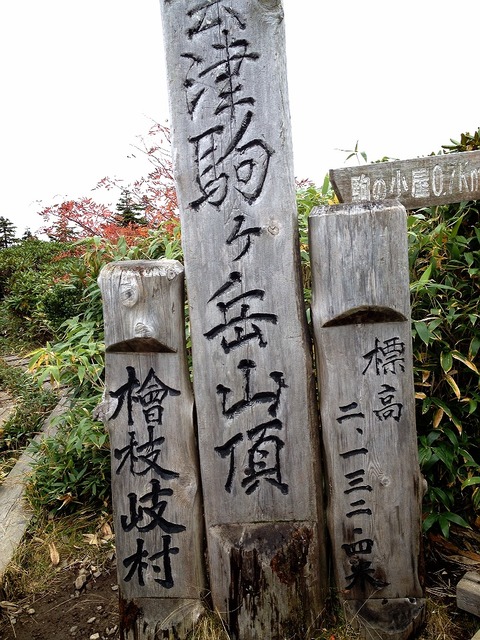 会津駒ヶ岳山頂
檜枝岐村
標高
二、一三二・四米
駒の小屋0.7km